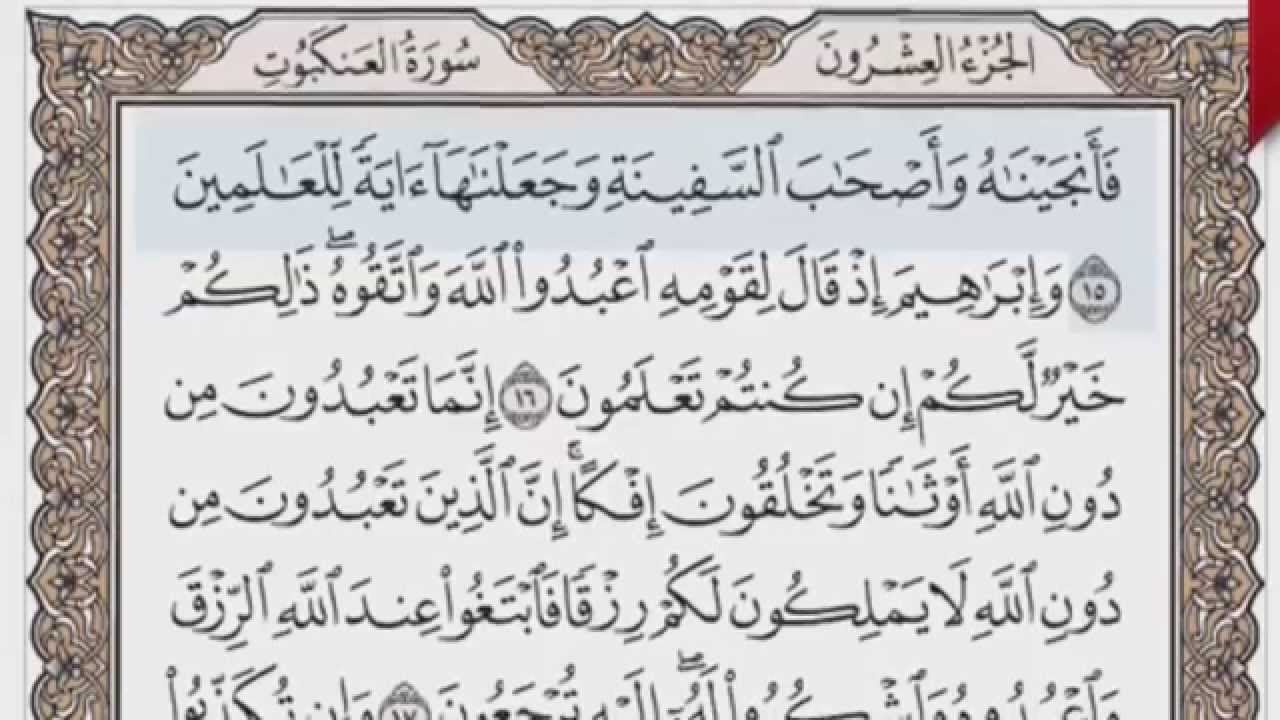 الجُزْءُ العِشْرُونَ
سُورَةُ العَنكَبُوتِ
فَأَنجَيْنَٰهُ وَأَصْحَٰبَ ٱلسَّفِينَةِ وَجَعَلْنَٰهَآ ءَايَةً لِّلْعَٰلَمِينَ
١٥ وَإِبْرَٰهِيمَ إِذْ قَالَ لِقَوْمِهِ ٱعْبُدُوا۟ ٱللَّهَ وَٱتَّقُوهُ ۖ ذَٰلِكُمْ
خَيْرٌ لَّكُمْ إِن كُنتُمْ تَعْلَمُونَ ١٦ إِنَّمَا تَعْبُدُونَ مِن
دُونِ ٱللَّهِ أَوْثَٰنًا وَتَخْلُقُونَ إِفْكًا ۚ إِنَّ ٱلَّذِينَ تَعْبُدُونَ مِن
دُونِ ٱللَّهِ لَا يَمْلِكُونَ لَكُمْ رِزْقًا فَٱبْتَغُوا۟ عِندَ ٱللَّهِ ٱلرِّزْقَ
وَٱعْبُدُوهُ وَٱشْكُرُوا۟ لَهُۥٓ ۖ إِلَيْهِ تُرْجَعُونَ ١٧ وَإِن تُكَذِّبُوا۟